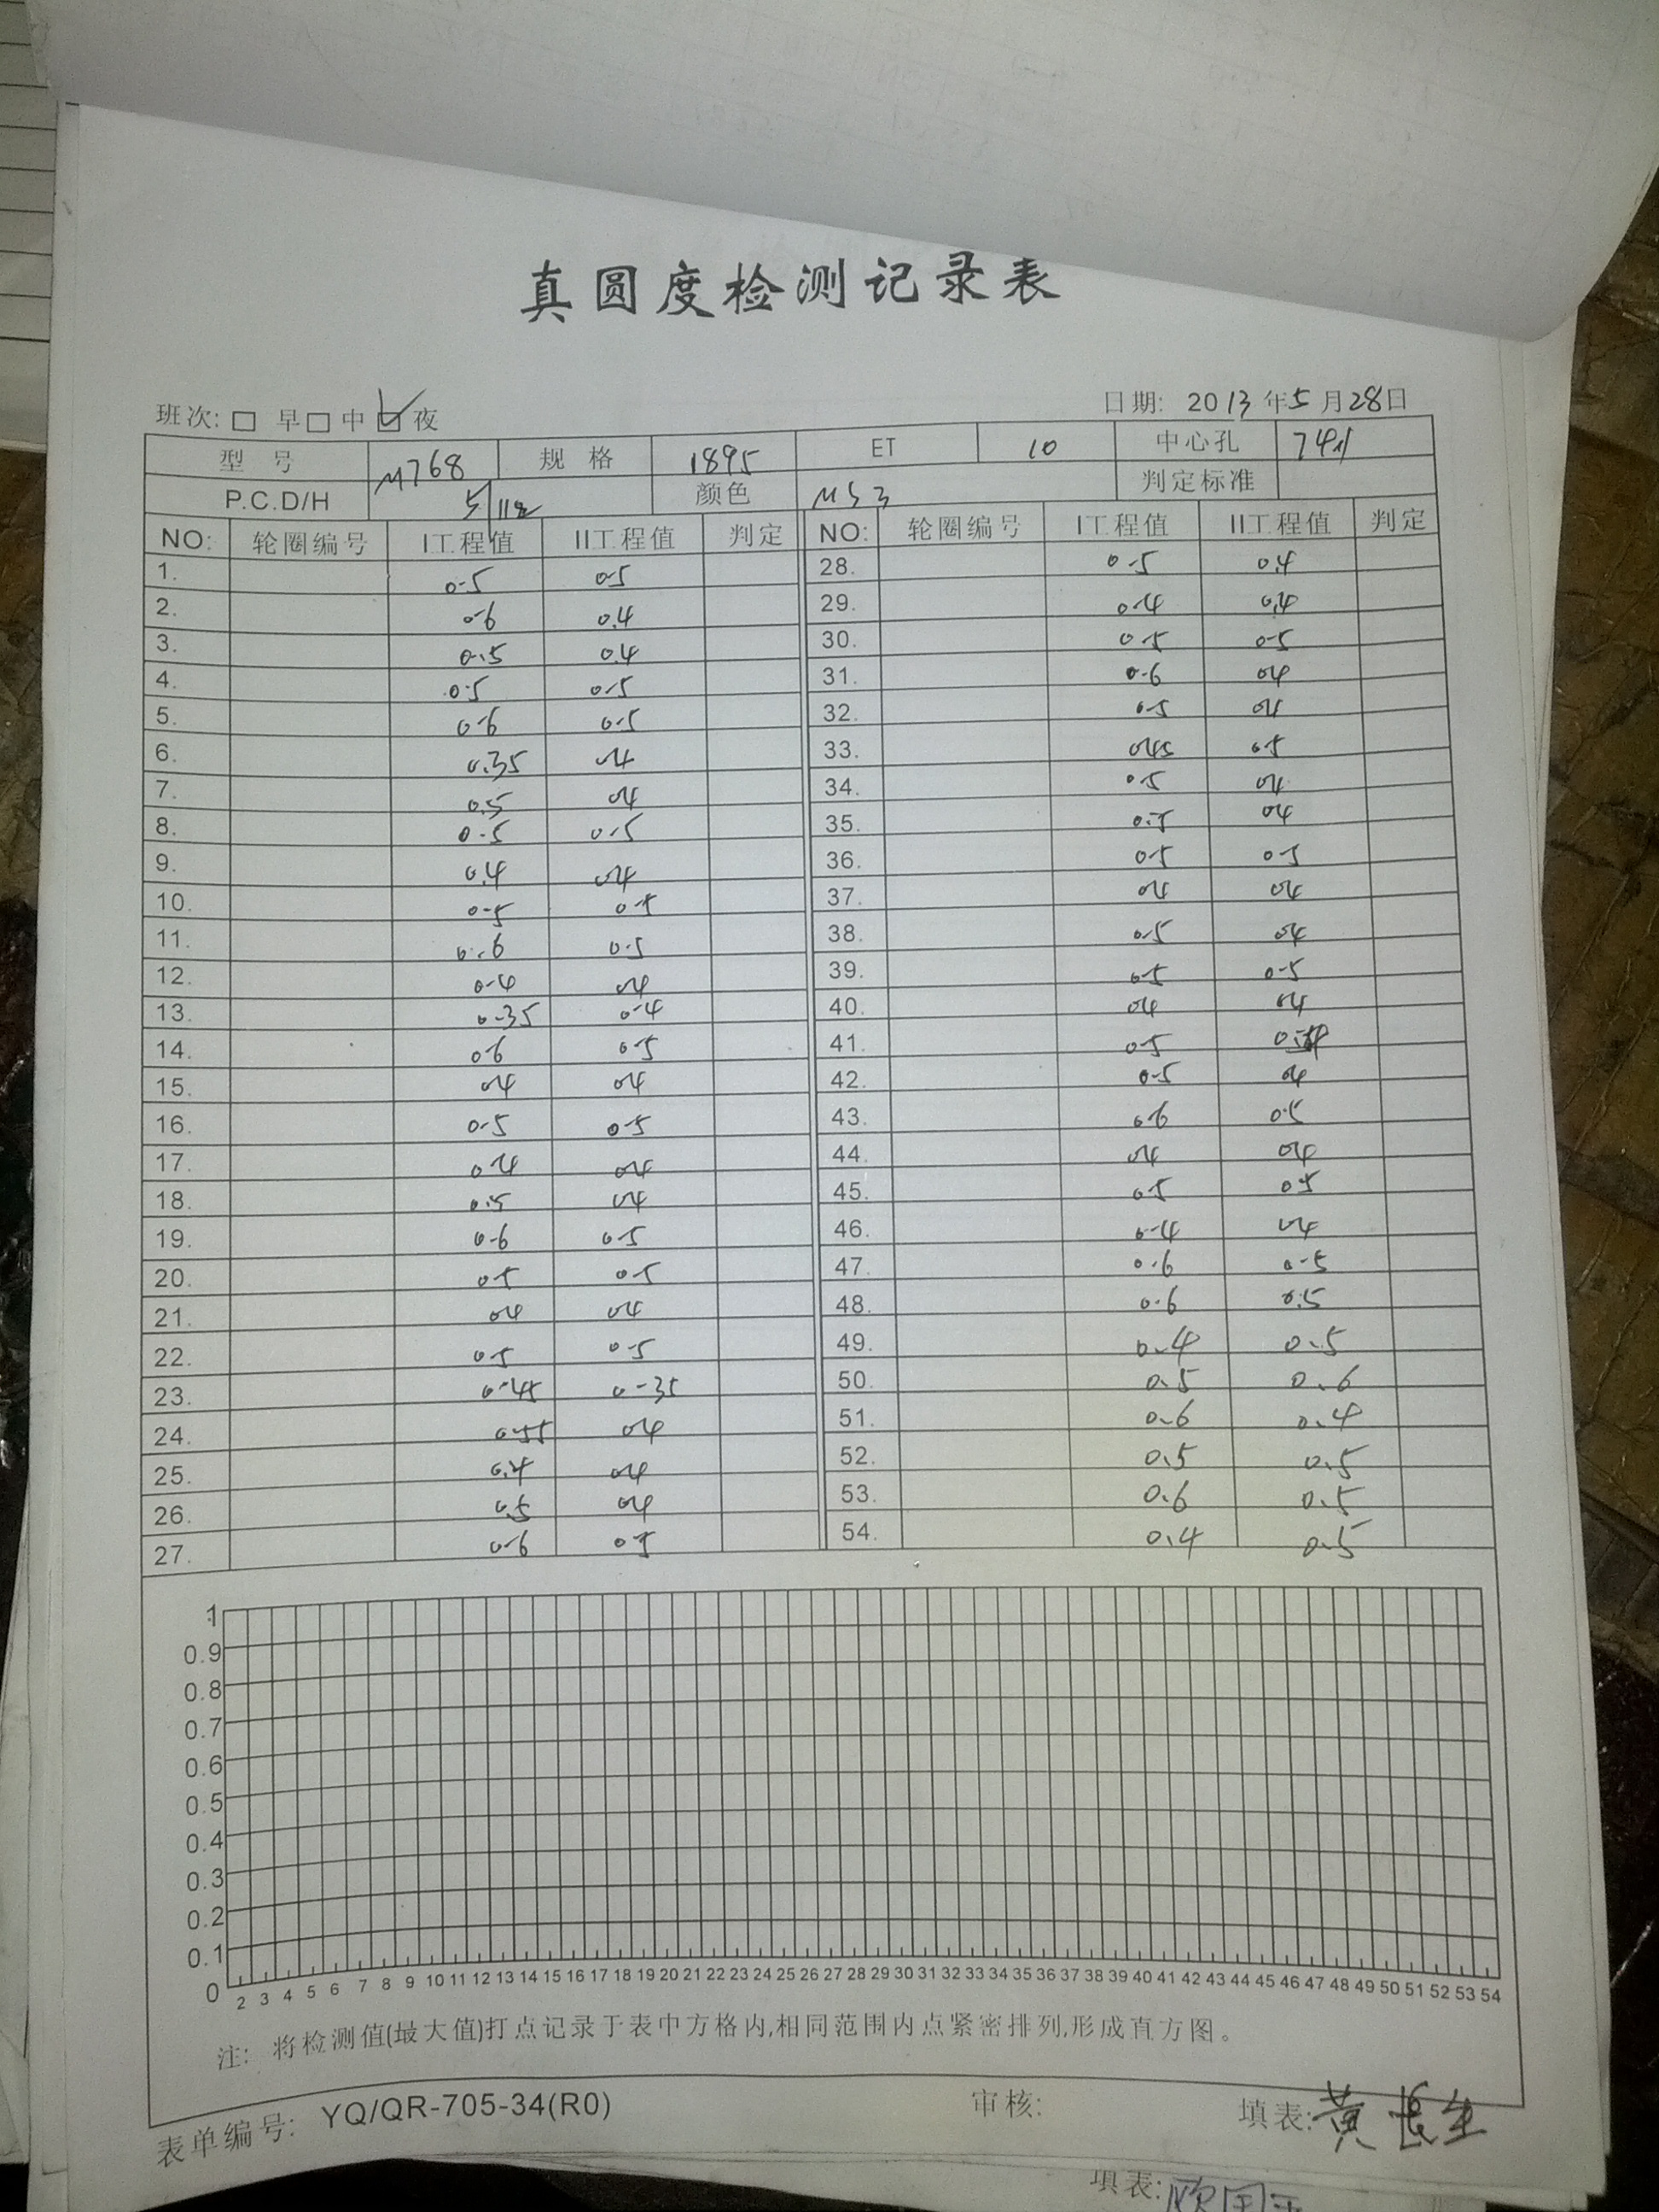 真圆度检测记录表
班次: □ 早 □ 中 ☑ 夜 日期: 2013年5月28日
型号 M768 规格 1895 ET 10 中心孔 741
P.C.D/H 5/112 颜色 MS3 判定标准
NO: 轮圈编号 I工程值 II工程值 判定 NO: 轮圈编号 I工程值 II工程值 判定
1. 0.5 0.5 28. 0.5 0.4
2. 0.6 0.4 29. 0.4 0.4
3. 0.5 0.4 30. 0.5 0.5
4. 0.5 0.5 31. 0.6 0.4
5. 0.6 0.5 32. 0.5 0.4
6. 0.35 0.4 33. 0.45 0.5
7. 0.5 0.4 34. 0.5 0.4
8. 0.5 0.5 35. 0.5 0.4
9. 0.4 0.4 36. 0.5 0.5
10. 0.5 0.5 37. 0.4 0.4
11. 0.6 0.5 38. 0.5 0.4
12. 0.4 0.4 39. 0.5 0.5
13. 0.35 0.4 40. 0.4 0.4
14. 0.6 0.5 41. 0.5
15. 0.4 0.4 42. 0.5 0.4
16. 0.5 0.5 43. 0.6 0.5
17. 0.4 0.4 44. 0.4 0.4
18. 0.5 0.4 45. 0.5 0.5
19. 0.6 0.5 46. 0.4 0.4
20. 0.5 0.5 47. 0.6 0.5
21. 0.4 0.4 48. 0.6 0.5
22. 0.5 0.5 49. 0.4 0.5
23. 0.45 0.35 50. 0.5 0.6
24. 0.55 0.4 51. 0.6 0.4
25. 0.4 0.4 52. 0.5 0.5
26. 0.5 0.4 53. 0.6 0.5
27. 0.6 0.5 54. 0.4 0.5
1
0.9
0.8
0.7
0.6
0.5
0.4
0.3
0.2
0.1
0
2 3 4 5 6 7 8 9 10 11 12 13 14 15 16 17 18 19 20 21 22 23 24 25 26 27 28 29 30 31 32 33 34 35 36 37 38 39 40 41 42 43 44 45 46 47 48 49 50 51 52 53 54
注: 将检测值(最大值)打点记录于表中方格内,相同范围内点紧密排列,形成直方图。
表单编号: YQ/QR-705-34(R0) 审核: 填表: 黄长生
填表: